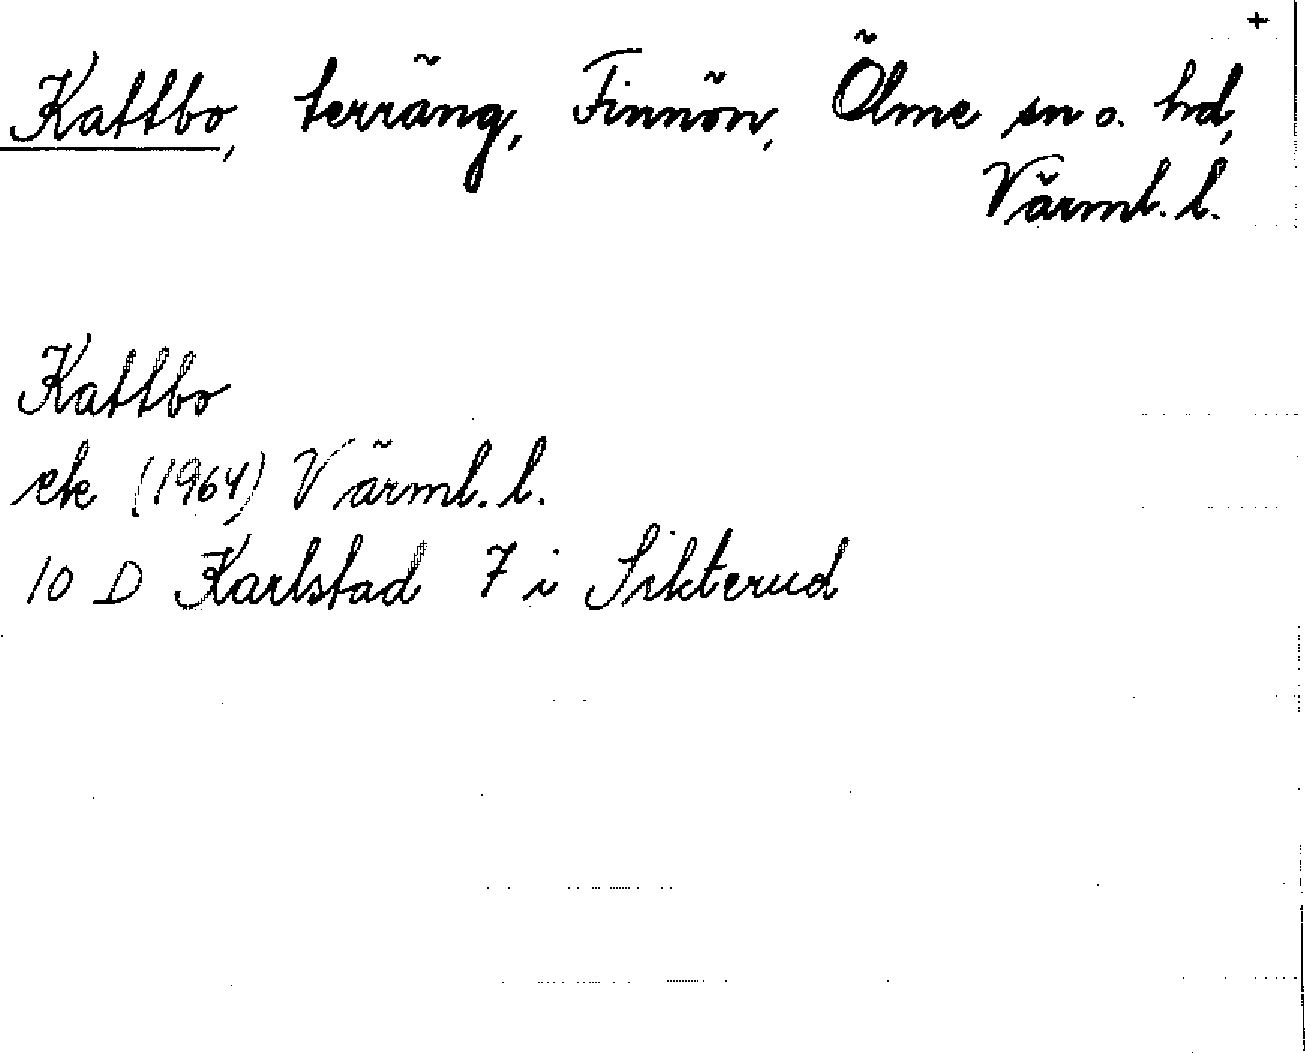 +
Kattbo, terräng, Finnön, Ölme sn o. hd,
Värml. l.
Kattbo
ek (1964) Värml. l.
10 D Karlstad 7 i Sikterud